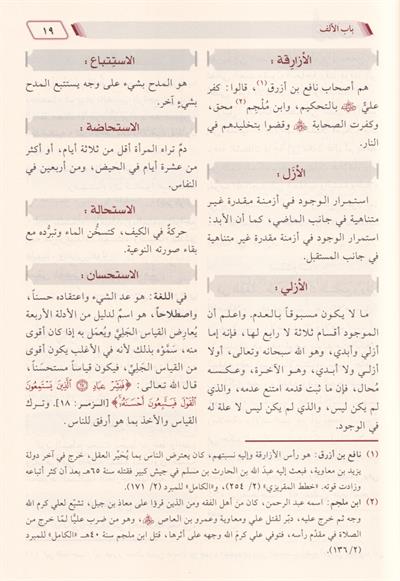 باب الألف
١٩
الأزارقة :
هم أصحاب نافع بن أزرق(١)، قالوا: كفر
عليٌّ ﵁ بالتحكيم، وابن مُلْجِم(٢) محق،
وكفرت الصحابة ﵃ وقضوا بتخليدهم في
النار.
الأَزَل :
استمرار الوجود في أزمنة مقدرة غير
متناهية في جانب الماضي، كما أن الأبد:
استمرار الوجود في أزمنة مقدرة غير متناهية
في جانب المستقبل.
الأزلي :
ما لا يكون مسبوقاً بالعدم. واعلم أن
الموجود أقسام ثلاثة لا رابع لها، فإنه إما
أزلي وأبدي، وهو الله سبحانه وتعالى، أولا
أزلي ولا أبدي، وهو الدنيا، أو أبدي غير أزلي، وهو الآخرة، وعكسه
مُحال، فإن ما ثبت قدمه امتنع عدمه، والذي
لم يكن ليس، والذي لم يكن ليس لا علة له
في الوجود.
الاستِتباع :
هو المدح بشيء على وجه يستتبع المدح
بشيءٍ آخر.
الاستحاضة :
دمٌ تراه المرأة أقل من ثلاثة أيام، أو أكثر
من عشرة أيام في الحيض، ومن أربعين في
النفاس.
الاستحالة :
حركةٌ في الكيف، كتسخُّن الماء وتبرُّده مع
بقاء صورته النوعية.
الاستحسان :
في اللغة: هو عد الشيء واعتقاده حسناً،
واصطلاحاً، هو اسمٌ لدليل من الأدلة الأربعة
يُعارِض القياس الجَليَّ ويُعمَل به إذا كان أقوى
منه، سَمَّوْه بذلك لأنه في الأغلب يكون أقوى
من القياس الجَليِّ، فيكون قياساً مستحسَناً،
قال الله تعالى: ﴿فَبَشِّرْ عِبَادِ ۝ الَّذِينَ يَسْتَمِعُونَ
الْقَوْلَ فَيَتَّبِعُونَ أَحْسَنَهُ﴾ [الـزمـر: ١٨]. وتـرك
القياس والأخذ بما هو أرفق للناس.
(١) نافع بن أزرق: هو رأس الأزارقة وإليه نسبتهم، كان يعترض الناس بما يُحَيِّر العقل، خرج في آخر دولة
يزيد بن معاوية، فبعث إليه عبدَ الله بن الحارث بن مسلم في جيش كبير فقتله سنة ٦٥هـ بعد أن كثر أتباعه
وزادت قوته. «خطط المقريزي» (٢/ ٢٥٤)، و«الكامل» للمبرد (٢/ ١٧١).
(٢) ابن ملجم: اسمه عبد الرحمن، كان من أهل الفقه ومن الذين قرؤا على معاذ بن جبل، تشيَّع لعلي كرم الله
وجهه ثم خرج عليه، دبّر لقتل علي ومعاوية وعمرو بن العاص ﵃، وهو من ضرب عليًّا لمّا خرج من
الصلاة في مقدّم رأسه، فتوفي علي كرم الله وجهه على أثرها، قتل ابن ملجم سنة ٤٠هـ. «الكامل» للمبرد
(٢/ ١٣٦).